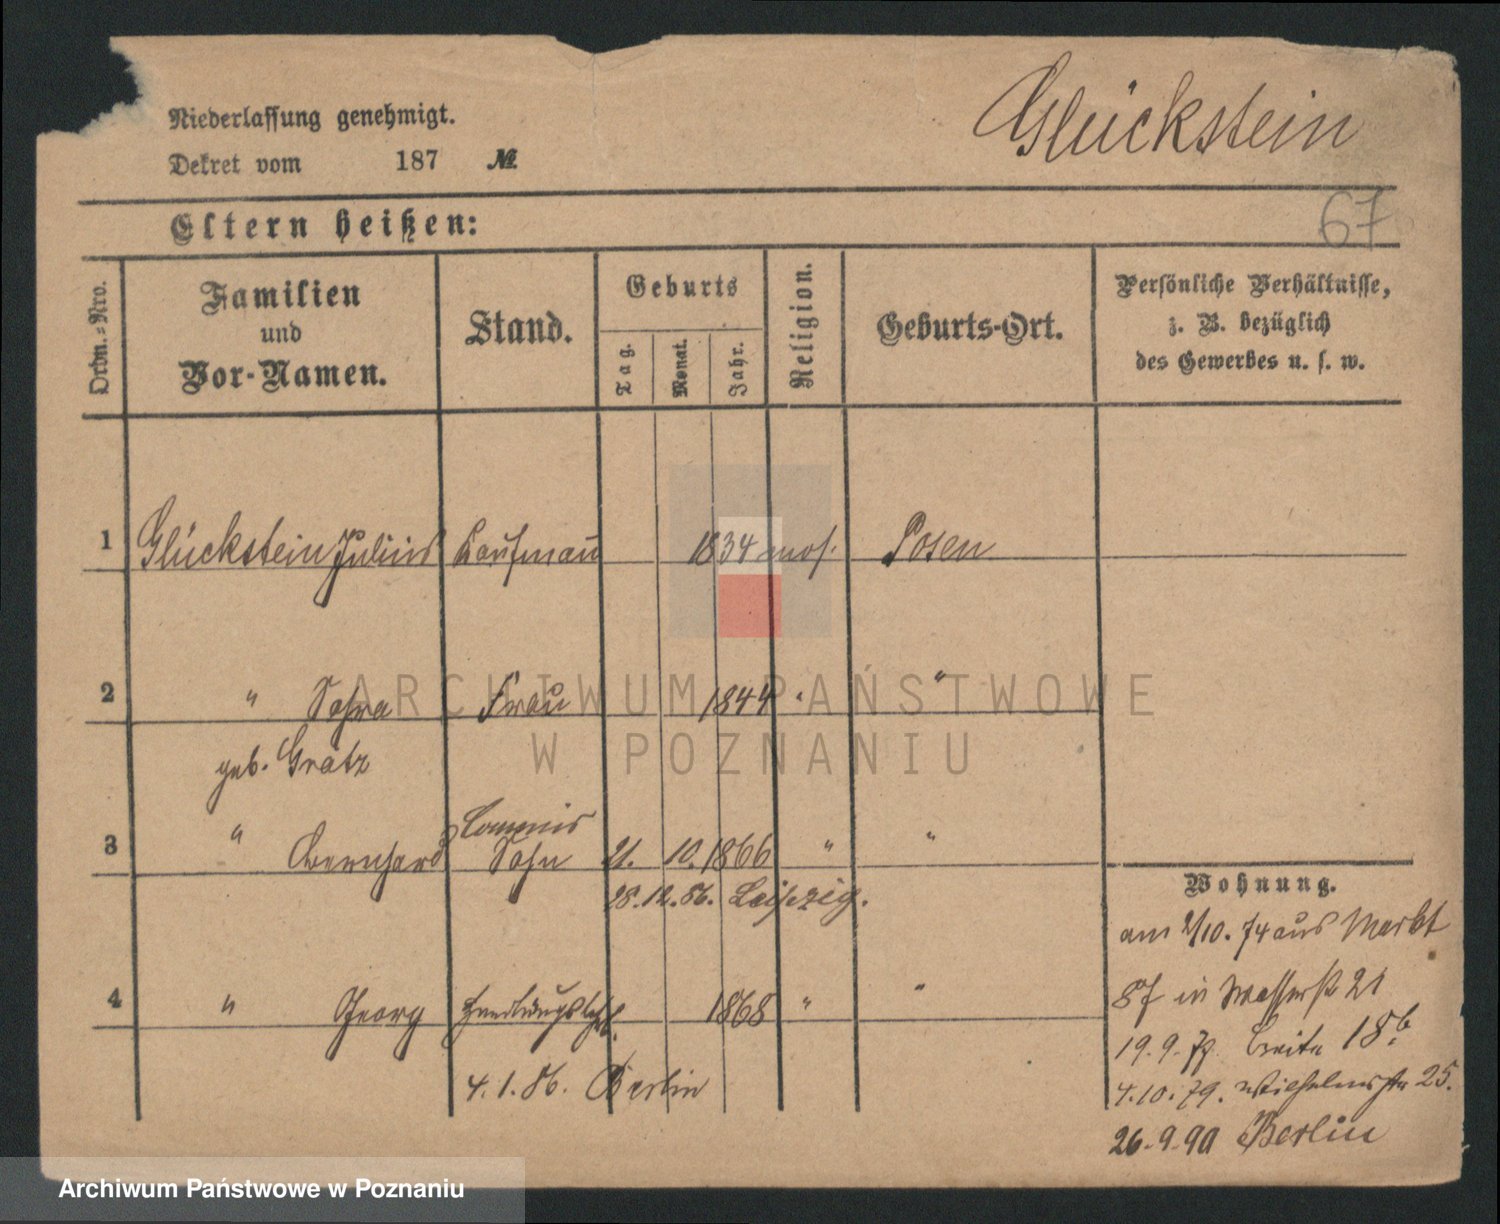 Niederlassung genehmigt.
Glückstein
Dekret vom 187 №
Eltern heißen:
67
Ordn.=Nro.
Familien
und
Vor-Namen.
Stand.
Geburts
Tag.
Monat.
Jahr.
Religion.
Geburts-Ort.
Persönliche Verhältnisse,
z. B. bezüglich
des Gewerbes u. s. w.
1 Glückstein Julius Kaufmann 1834 mos. Posen
2 " Sahra Frau 1844 " "
geb. Grätz
Commis
3 " Bernhard Sohn 21. 10. 1866 " "
28.12.86. Leipzig.
Wohnung.
am 2/10. 74 aus Markt
87 in Wasserstr 21
4 " Georg Handlungslehrl. 1868 " "
19.9.77. Breite 18b.
4.1.86. Berlin
4.10.79. Wilhelmstr 25.
26.9.90 Berlin
ARCHIWUM PAŃSTWOWE
W POZNANIU
Archiwum Państwowe w Poznaniu